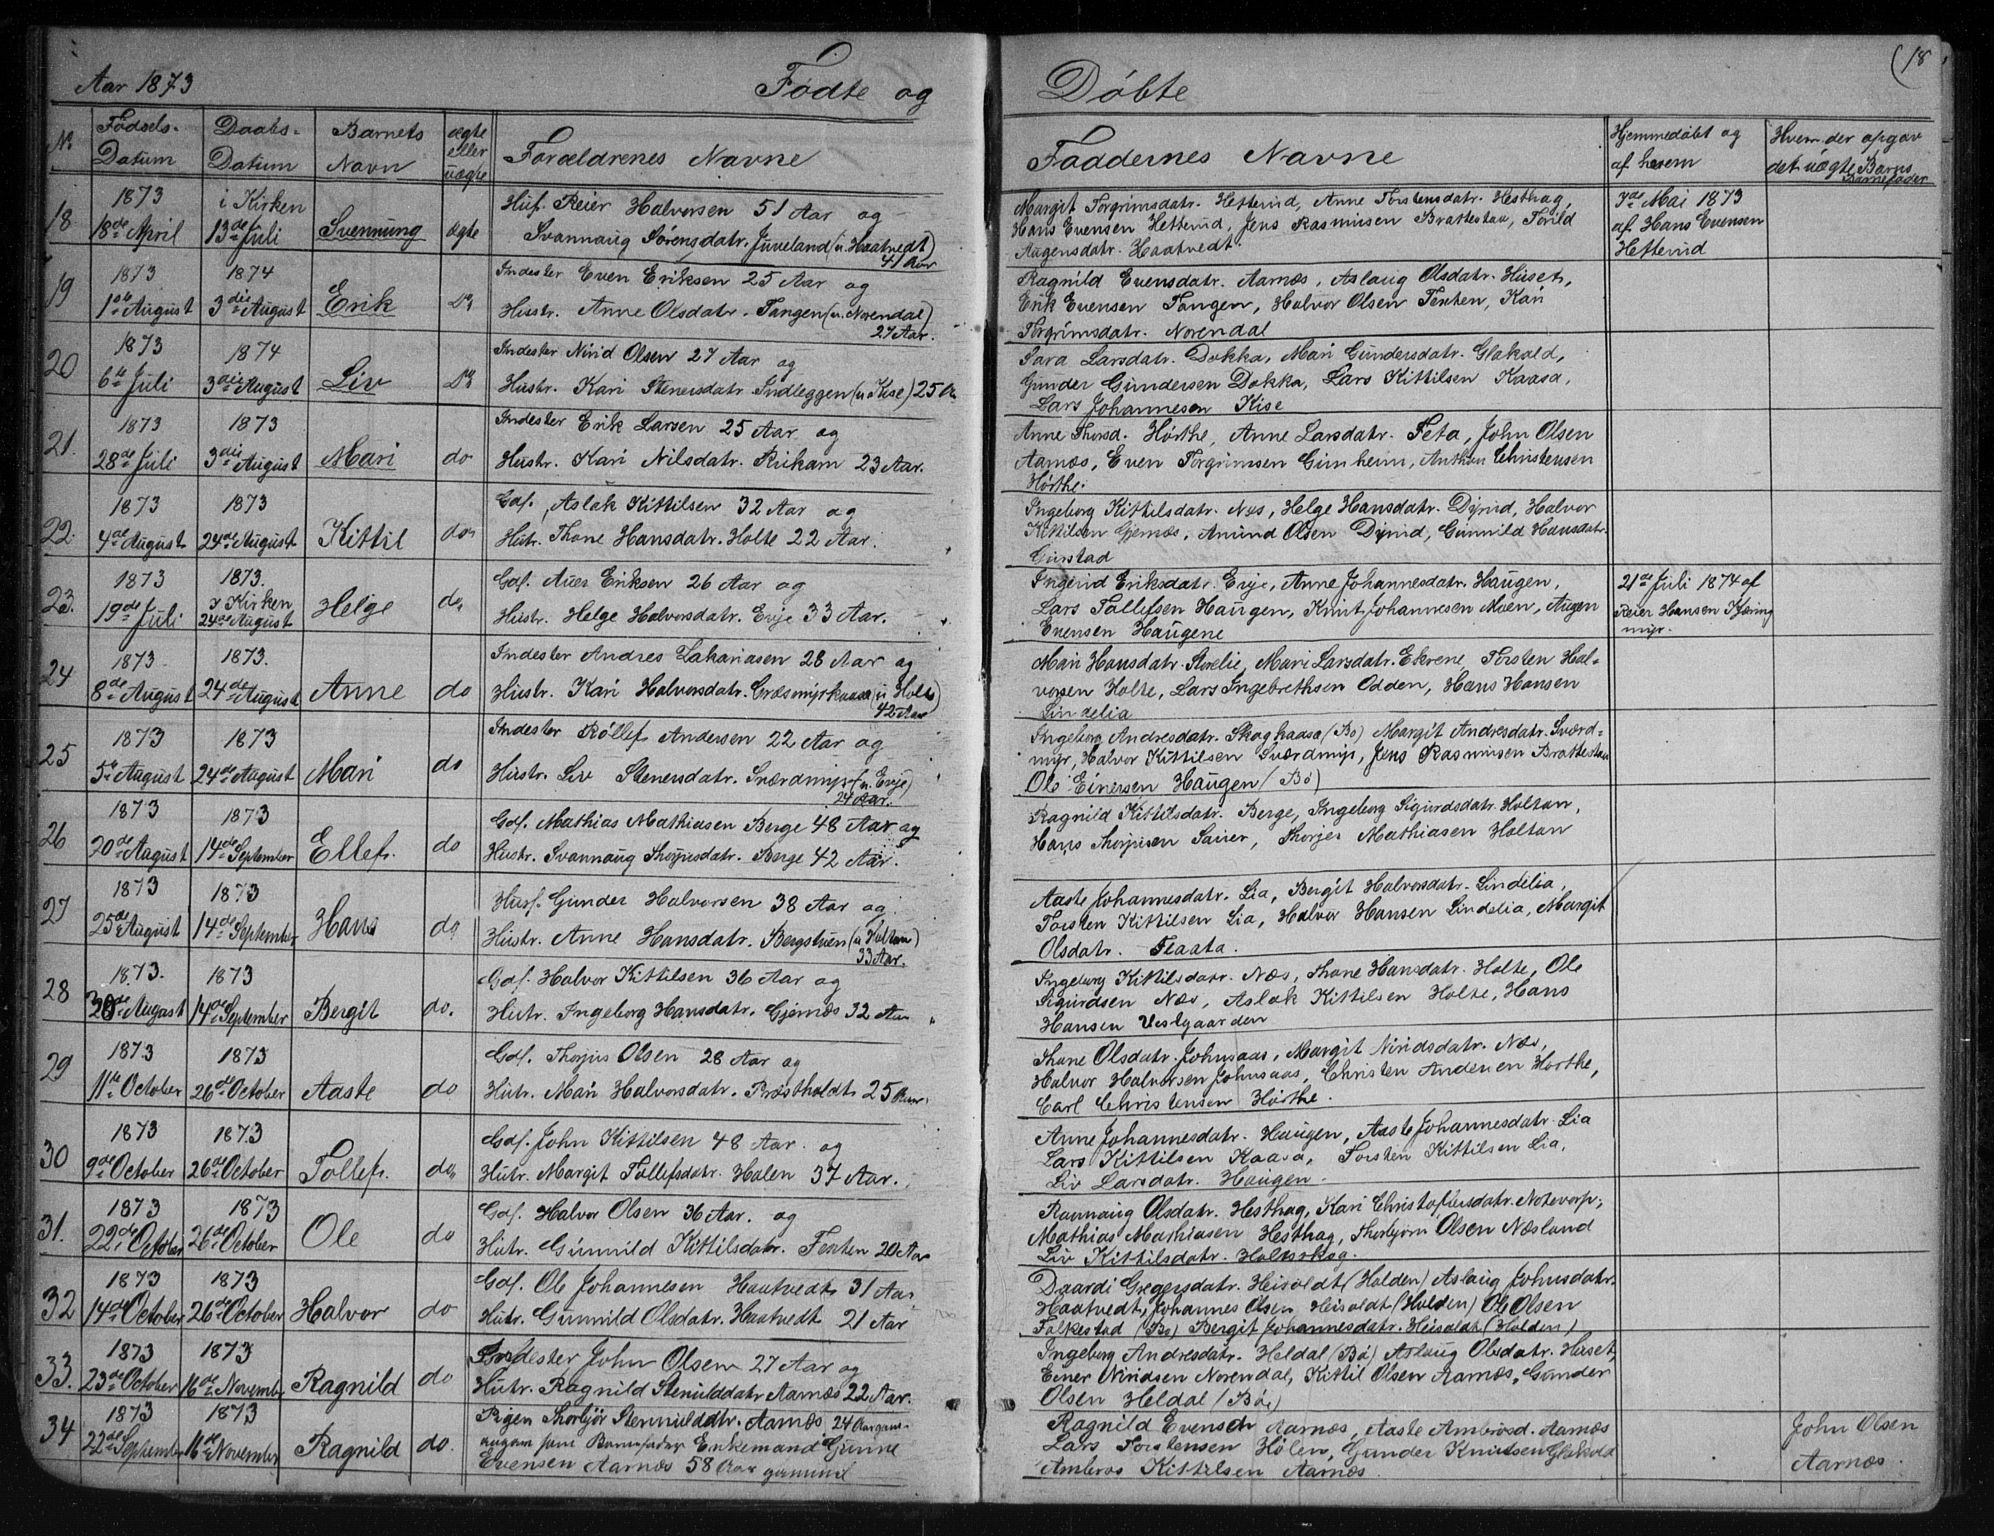 (18
Aar 1873
Fødte og Døbte
Nr.
Fødsels-
Datum
Daabs-
Datum
Barnets
Navn
ægte
eller
uægte
Forældrenes Navne
Faddernes Navne
Hjemmedøbt og
af hvem
Hvem der opgav
det uægte Barns
Barnefader
18
1873
18de April
i Kirken
13de Juli
Svennung
ægte
Huf. Reier Halvorsen 51 Aar og
Svannaug Sørensdatr. Juveland (u. Haatvedt)
41 Aar
Margit Torgrimsdatr. Hetterud, Anne Torstensdatr. Hesthag,
Hans Evensen Hetterud, Jens Rasmusen Brattestaa, Torild
Aagensdatr. Haatvedt.
7de Mai 1873
af Hans Evensen
Hetterud
19
1873
1ste August
1874
3die August
Erik
Do
Inderster Even Eriksen 25 Aar og
Hustr. Anne Olsdatr. Tangen (u. Norendal)
27 Aar.
Ragnild Evensdatr. Aarnæs, Aslaug Olsdatr. Huset,
Erik Evensen Tangen, Halvor Olsen Tenten, Kari
Torgrimsdatr. Norendal
20
1873
6te Juli
1874
3die August
Liv
Do
Indester Nirid Olsen 27 Aar og
Hustr. Kari Stenersdatr. Indleggen (u. Kise) 25 A.
Sara Larsdatr. Dokka, Mari Gundersdatr. Glekald,
Gunder Gundersen Dokka, Lars Kittilsen Kaasa,
Lars Johannesen Kise
21.
1873
28de Juli
1873
3die August
Mari
do
Indester Erik Larsen 25 Aar og
Hustr. Kari Nilsdatr. Rikam 23 Aar.
Anne Thorsd. Hørthe, Anne Larsdatr. Feta, John Olsen
Aarnæs, Even Torgrimsen Gimheim, Anthon Christensen
Hørthe.
22.
1873
4de August
1873
24de August
Kittil
do
Gdf. Aslak Kittilsen 32 Aar og
Hutr. Thone Hansdatr. Holte 22 Aar.
Ingeborg Kittilsdatr. Næs, Helge Hansdatr. Dyrud, Halvor
Kittilsen Gjernæs, Amund Olsen Dyrud, Gunnild Hansdatr.
Gurstad
23.
1873
19de Juli
1873.
I Kirken
24de August
Helge
do
Gdf. Auer Eriksen 26 Aar og
Hustr. Helge Halvorsdatr. Evje 33 Aar.
Ingerid Eriksdatr. Evje, Anne Johannesdatr. Haugen,
Lars Tollefsen Haugen, Knut Johannesen Moen, Augen
Evensen Haugene
21de Juli 1874 af
Reier Hansen Kjæring
myr.
24
1873
8de August
1873.
24de August
Anne
do
Indester Andres Zakariasen 28 Aar og
Hustr. Kari Halvorsdatr. Græsmyrkaasa (u Holte)
42 Aar
Mari Hansdatr. Storelie, Mari Larsdatr. Ekrene, Torsten Hal-
vorsen Holte, Lars Ingebrethsen Odden, Hans Hansen
Lindelia
25
1873
5te August
1873
24de August
Mari
do
Indester Røllef Andersen 22 Aar og
Hustr. Liv Stenersdatr. Sværdmyr (u. Evje)
24 Aar.
Ingeborg Andresdatr. Skoghaasa (Bø) Margit Andresdatr. Sværd-
myr, Halvor Kittilsen Sværdmyr, Jens Rasmusen Brattestaa
Ole Einersen Haugen (Bø)
26
1873
20de August
1873
14de September
Ellef.
do
Gdf. Mathias Mathiasen Berge 48 Aar og
Hustr. Svannaug Thorjusdatr. Berge 42 Aar.
Ragnild Kittilsdatr. Berge, Ingeborg Sigurdsdatr. Holtan,
Hans Thorjusen Sauer, Thorjer Mathiasen Holtan
27
1873
25de August
1873
14de September
Hans
do
Husf. Gunder Halvorsen 38 Aar og
Hustr. Anne Hansdatr. Bergstuen (u Holtan)
33 Aar.
Aaste Johannesdatr. Lia, Bergit Halvorsdatr. Lindelia,
Torsten Kittilsen Lia, Halvor Hansen Lindelia, Margit
Olsdatr. Flaata.
28
1873.
30de August
1873
14de September
Bergit
do.
Gdf. Halvor Kittilsen 36 Aar og
Hutr. Ingeborg Hansdatr. Gjernæs 32 Aar
Ingeborg Kittilsdatr. Næs, Thone Hansdatr. Holte, Ole
Sigurdsen Næs, Aslak Kittilsen Holte, Hans
Hansen Vestgaarden
29
1873
11te October
1873
26de October
Aaste
do
Gdf. Thorjus Olsen 28 Aar og
Hutr. Mari Halvorsdatr. Præstholdt 25 Aar.
Thone Olsdatr. Johnsaas, Margit Niridsdatr. Næs,
Halvor Halvorsen Johnsaas, Christen Andersen Hørthe,
Carl Christensen Hørthe.
30
1873
9de October
1873
26de October
Tollef.
do
Gdf. John Kittilsen 48 Aar. og
Hutr. Margit Tollefsdatr. Holen 37 Aar.
Anne Johannesdatr. Haugen, Aaste Johannesdatr. Lia
Lars Kittilsen Kaasa, Torsten Kittilsen Lia,
Liv Larsdatr. Haugen.
31.
1873
22de October
1873
26de October
Ole
do
Gdf. Halvor Olsen 36 Aar. og
Hutr. Gunnild Kittilsdatr. Tenten 20 Aar
Ravnaug Olsdatr. Hesthag, Kari Christofersdatr. Notevarp,
Mathias Mathiasen Hesthag, Thorbjørn Olsen Næsland
Liv Kittilsdatr. Holtskog.
32
1873
14de October
1873
26de October
Halvor
do
Gdf. Ole Johannesen Haatvedt 31 Aar
Hutr. Gunnild Olsdatr. Haatvedt 21 Aar
Daardi Gregersdatr. Heisoldt (Holden) Aslaug Johnsdatr.
Haatvedt, Johannes Olsen Heisoldt (Holden) Ole Olsen
Folkestad (Bø) Bergit Johannesdatr. Heisoldt (Holden)
33.
1873
23de October
1873
16de November
Ragnild
do
Indester John Olsen 27 Aar og
Hutr. Ragnild Stenulddatr Aarnæs 22 Aar.
Ingeborg Andresdatr. Heldal (Bø) Aslaug Olsdatr. Huset,
Ener Niridsen Norendal, Kittil Olsen Aarnæs, Gunder
Olsen Heldal (Bø)
34
1873
22de September
1873
16de November
Ragnild
do.
Pigen Thorbjør Stenulddtr. Aarnæs 24 Aar
Barnefader Enkemand Gunne
Evensen Aarnæs 58 Aar gammel
Ragnild Evensdr Aarnæs, Aaste Ambrosd. Aarnæs
Lars Torstensen Holen, Gunder Knutsen Glekald
Ambros Kittilsen Aarnæs
John Olsen
Aarnæs.